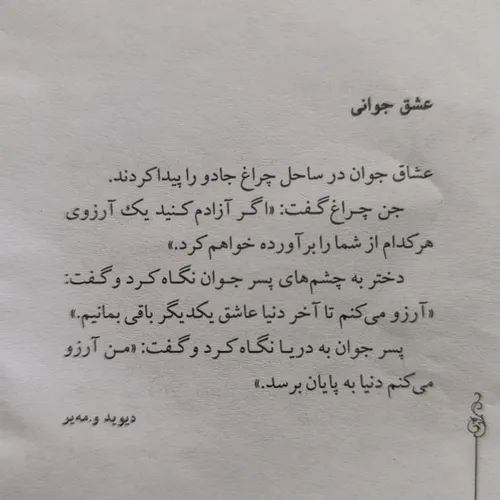 عشق جوانی
عشاق جوان در ساحل چراغ جادو را پیدا کردند.
جن چراغ گفت: «اگر آزادم کنید یک آرزوی
هرکدام از شما را برآورده خواهم کرد.»
دختر به چشم‌های پسر جوان نگاه کرد و گفت:
«آرزو می‌کنم تا آخر دنیا عاشق یکدیگر باقی بمانیم.»
پسر جوان به دریا نگاه کرد و گفت: «من آرزو
می‌کنم دنیا به پایان برسد.»
دیوید و.مه‌یر